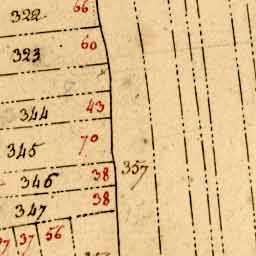 322 66
323 60
344 43
345 70
346 38 357
347 38
37 56